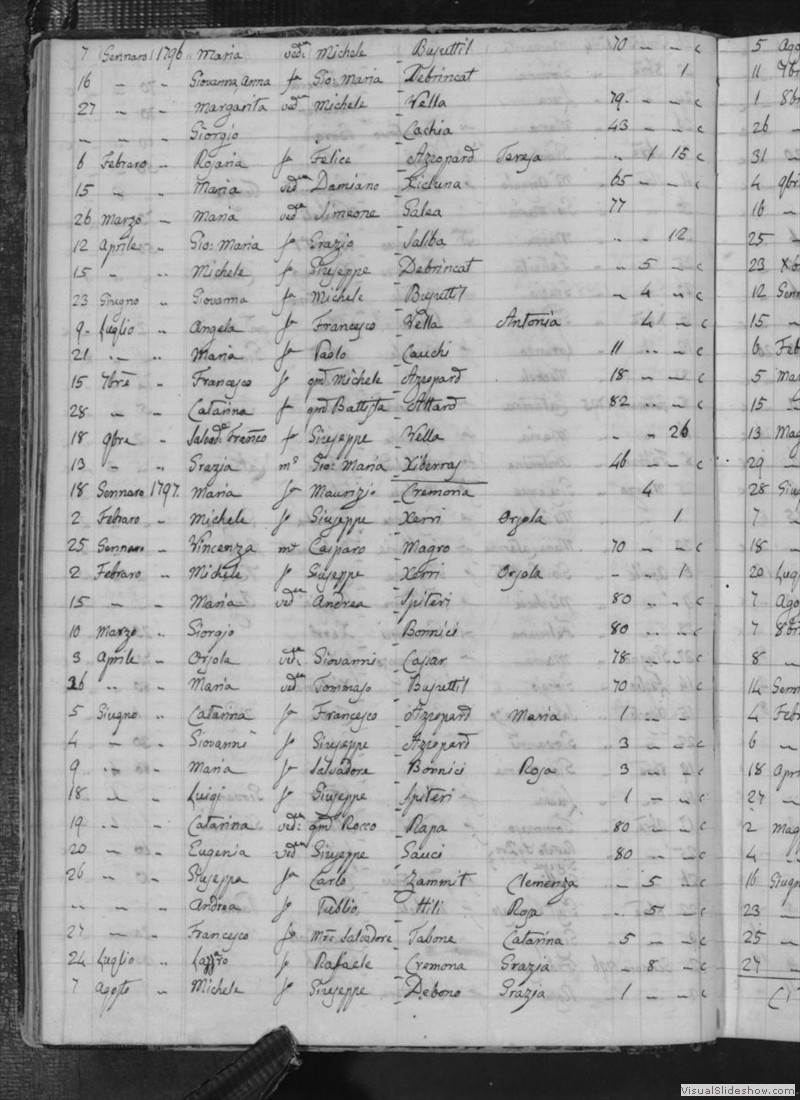 7 Gennaro 1796 Maria ved: Michele Busuttil 70 – – c
16 – – Giovanna Anna fa Gio: Maria Debrincat 1
27 – – Margarita veda Michele Vella 79 – – c
– – – Giorgio Cachia 43 – – c
6 Febraro – Rosaria fa Felice Azzopard Teresa .. 1 15 c
15 – – Maria veda Damiano Xicluna 65 – – c
26 Marzo – Maria veda Simeone Galea 77
12 Aprile .. Gio: Maria fo Grazio Saliba .. .. 12
15 – .. Michele fo Giuseppe Debrincat .. 5 – c
23 Giugno – Giovanna fa Michele Busuttil – 4 – c
9 Luglio .. Angela fa Francesco Vella Antonia 4 – c
21 .. .. Maria fa Paolo Cauchi 11 .. – c
15 7bre .. Francesco fo qm Michele Azzopard 18 – – c
28 – .. Catarina fa qm Battista Attard 82 .. – c
18 9bre – Salvad: Franco fo Giuseppe Vella – – 26
13 – .. Grazia me Gio: Maria Xiberras 46 – – c
18 Gennaro 1797. Maria fa Maurizio Cremona 4
2 Febraro .. Michele fo Giuseppe Xerri Orsola 1
25 Gennaro .. Vincenza me Casparo Magro 70 – – c
2 Febraro .. Michele fo Giuseppe Xerri Orsola – .. 1
15 – – Maria veda Andrea Spiteri 80 .. .. c
10 Marzo .. Giorgio Bonnici 80 .. – c
3 Aprile .. Orsola ved: Giovanni Casar 78 – – c
26 .. .. Maria veda Tommaso Busuttil 70 .. – c
5 Giugno .. Catarina fa Francesco Azzopard Maria 1 – –
4 – .. Giovanni fo Giuseppe Azzopard 3 – – c
9 .. .. Maria fa Salvadore Bonnici Rosa 3 – – c
18 – .. Luigi fo Giuseppe Spiteri 1 – – c
19 .. .. Catarina ved: qm Rocco Rapa 80 – – c
20 – .. Eugenia veda Giuseppe Sauci 80 .. .. c
26 – .. Giuseppa fa Carlo Zammit Clemenza – 5 – c
.. – .. Andrea fo Publio Hili Rosa .. 5 – c
27 – .. Francesco fo Mro Salvadore Tabone Catarina 5 – – c
24 Luglio .. Lazzaro fo Rafaele Cremona Grazia – 8 – c
7 Agosto .. Michele fo Giuseppe Debono Grazia 1 – – c
5 Ago
11 7br
1 8br
26 –
31 –
4 9br
16 –
25 –
23 Xb
12 Genn
15 –
6 Feb
5 Mar
15 –
13 Mag
29 –
28 Giug
7 –
18 –
20 Lug
7 Ago
7 8br
8 –
14 Genn
4 Febr
6 –
18 Apri
27 –
2 Mag
4 –
16 Giugn
23 –
25 –
27 –
VisualSlideshow.com